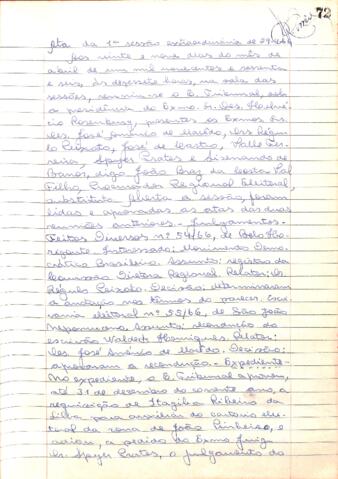 72
Ata da 1ª sessão extraordinária de 29-4-66
Aos vinte e nove dias do mês de
abril de um mil novecentos e sessenta
e seis, às dezesete horas, na sala das
sessões, reuniu-se o E. Tribunal, sob
a presidência do Exmo. Sr. Des.
cio Rosenburg, presentes os Exmos. Srs.
Des. José Américo de Macêdo, Drs. Régu-
lo Peixoto, José de Castro, Valle Fer-
reira, Spyer Prates e Lisenando de
Barros, digo João Braz da Costa Val
Filho, Procurador Regional Eleitoral,
substituto. Aberta a sessão, foram
lidas e aprovadas as atas das duas
reuniões anteriores. - Julgamentos. -
Feitos Diversos nº 54/66, de Belo Ho-
rizonte. Interessado: Movimento Demo-
crático Brasileiro. Assunto: registro da
Comissão Diretora Regional. Relator: Dr.
Régulo Peixoto. Decisão: determinaram
a anotação nos termos do parecer. Escri-
vania eleitoral nº 55/66, de São João
Nepomuceno. Assunto: recondução do
escrivão Waldeck Henriques. Relator:
Des. José Américo de Macêdo. Decisão:
aprovaram a recondução. - Expediente -
No expediente, o E. Tribunal aprovou,
até 31 de dezembro do corrente ano, a
requisição de Itagiba Ribeiro da
Silva para auxiliar do cartório elei-
toral da zona de João Pinheiro, e
adiou, a pedido do Exmo. Juiz
Dr. Spyer Prates, o julgamento do